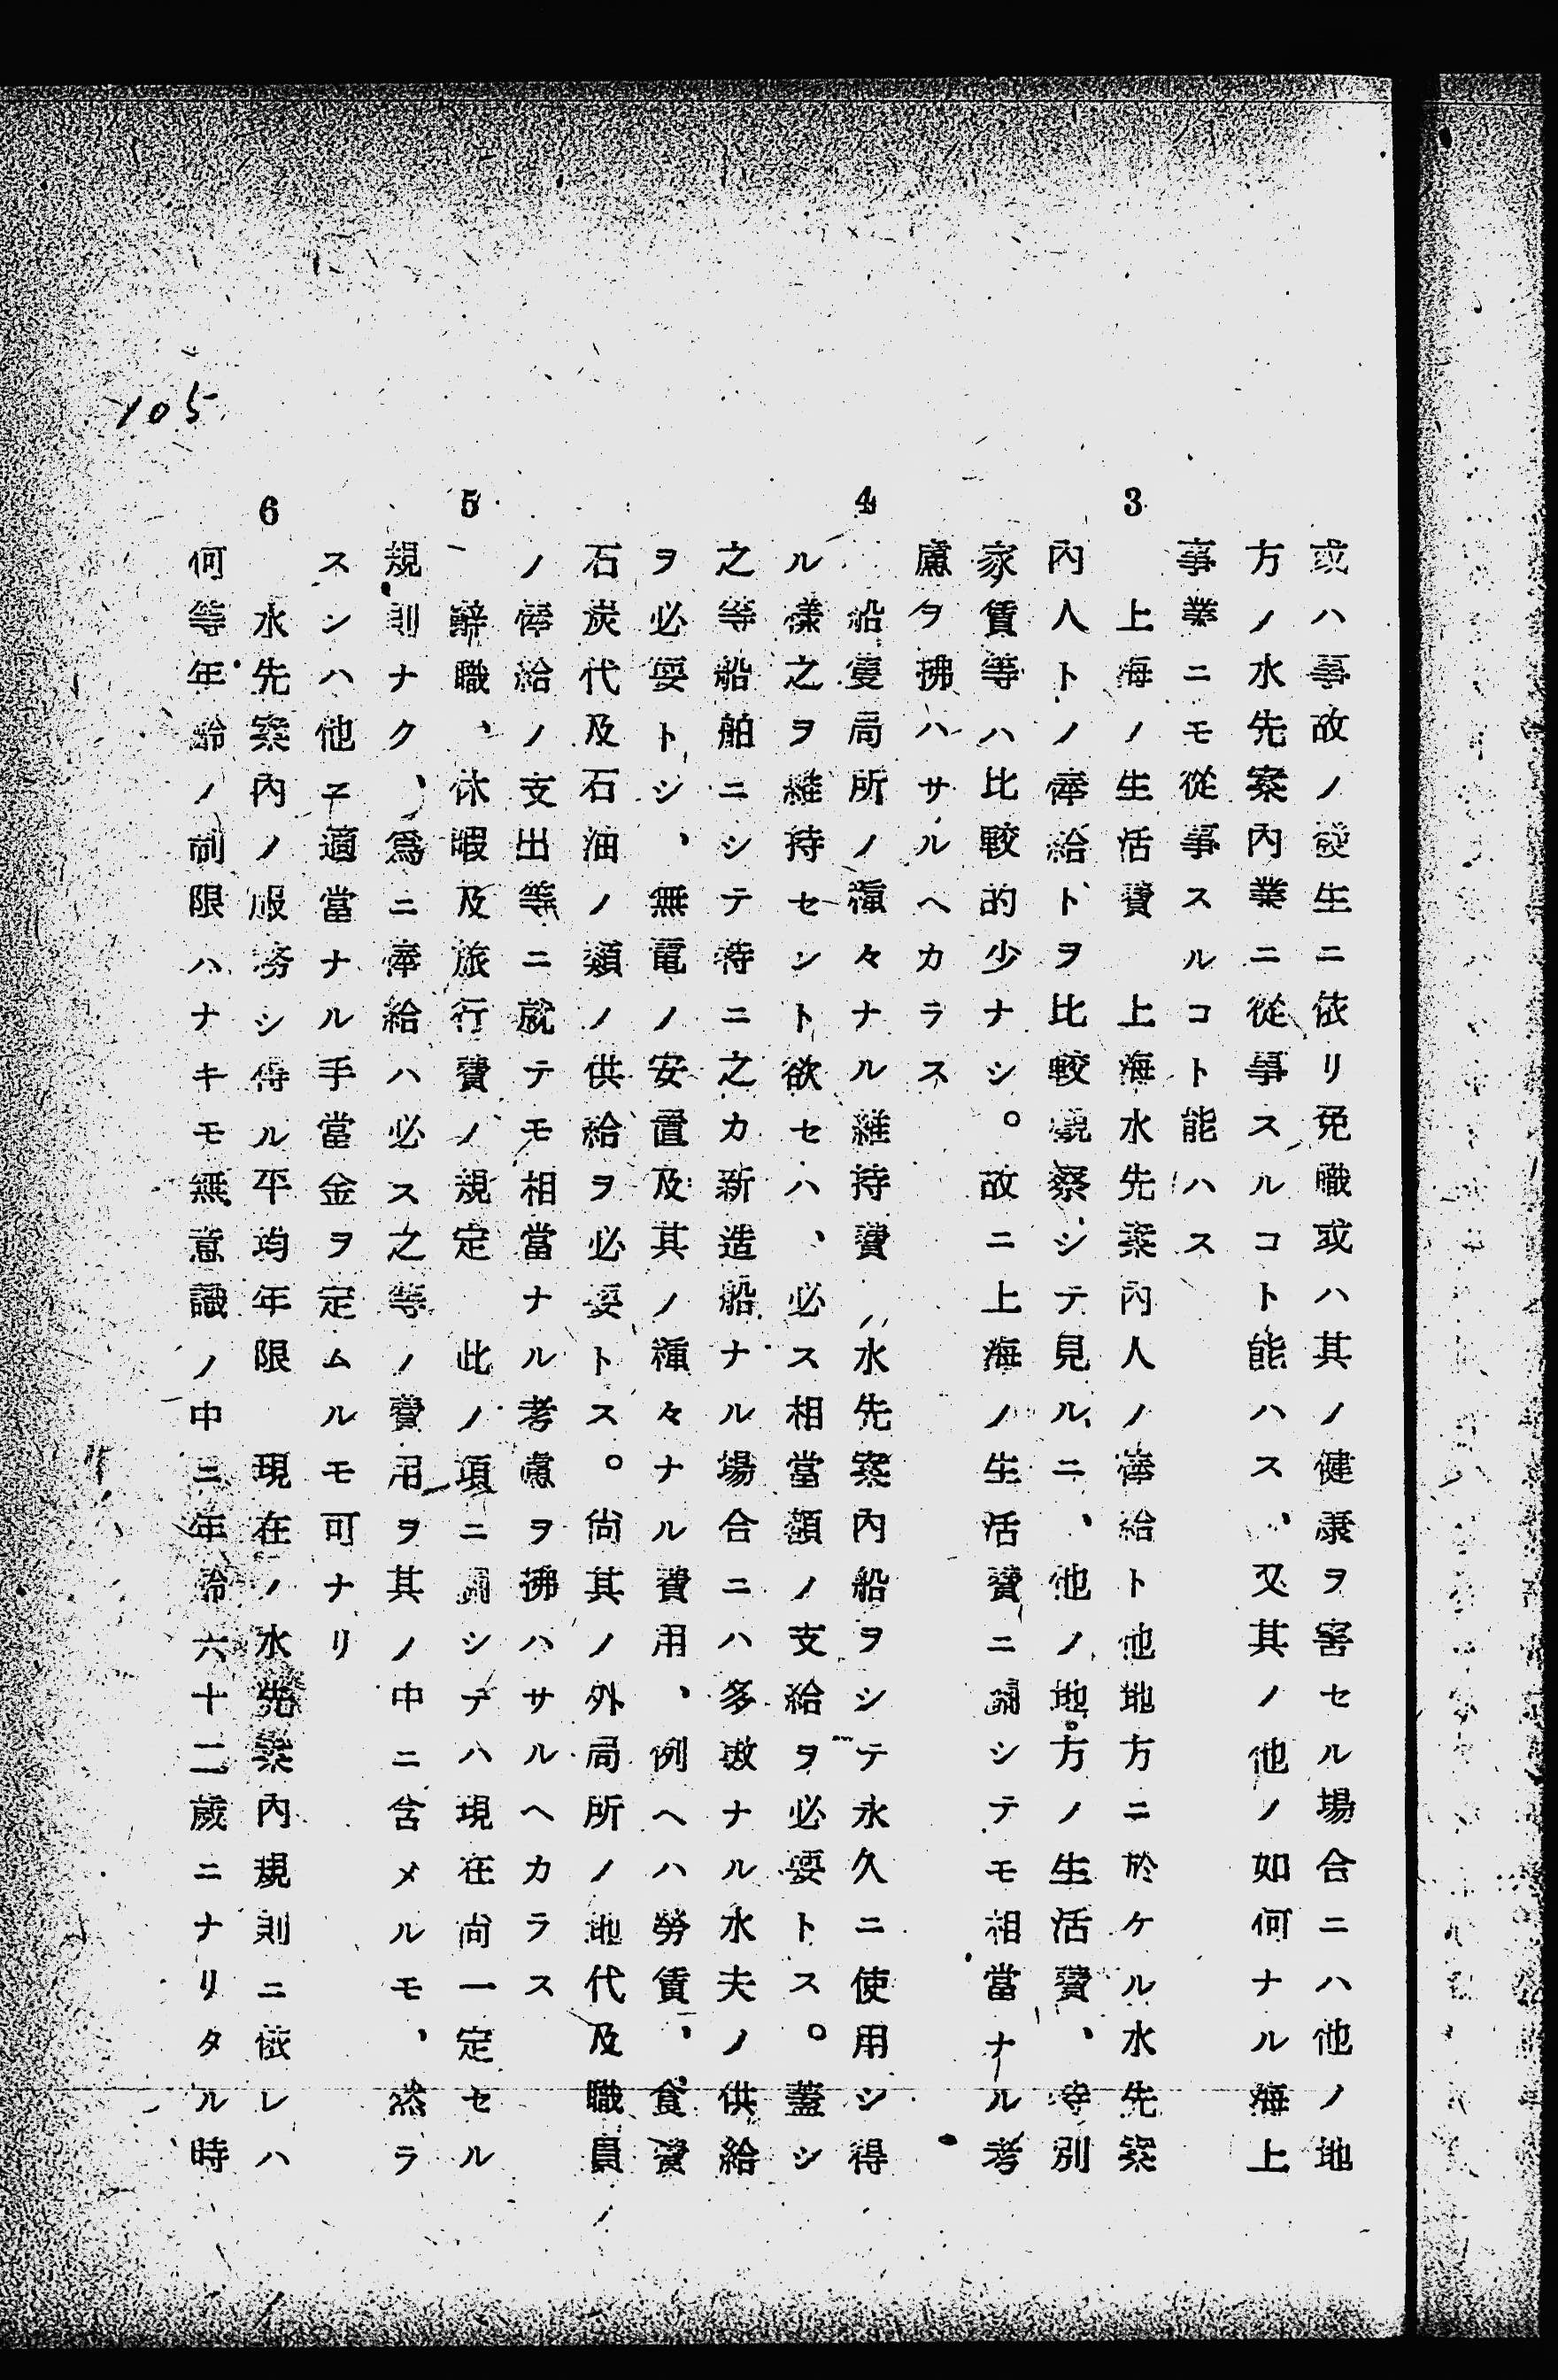 或ハ事故ノ發生ニ依リ免職或ハ其ノ健康ヲ害セル場合ニハ他ノ地
方ノ水先案內業ニ從事スルコト能ハス、又其ノ他ノ如何ナル海上
事業ニモ從事スルコト能ハス
3 上海ノ生活費 上海水先案內人ノ俸給ト他地方ニ於ケル水先案
內人トノ俸給トヲ比較觀察シテ見ルニ、他ノ地方ノ生活費、特別
家賃等ハ比較的少ナシ。故ニ上海ノ生活費ニ關シテモ相當ナル考
慮ヲ拂ハサルヘカラス
4 船隻局所ノ種々ナル維持費 水先案內船ヲシテ永久ニ使用シ得
ル樣之ヲ維持セシト欲セハ、必ス相當額ノ支給ヲ必要トス。蓋シ
之等船舶ニシテ特ニ之カ新造船ナル場合ニハ多數ナル水夫ノ供給
ヲ必要トシ、無電ノ安置及其ノ種々ナル費用、例ヘハ勞賃、食費
石炭代及石油ノ類ノ供給ヲ必要トス。尙其ノ外局所ノ地代及職員
ノ俸給ノ支出等ニ就テモ相當ナル考慮ヲ拂ハサルヘカラス
5 辭職、休暇及旅行費ノ規定 此ノ項ニ關シテハ現在尙一定セル
規則ナク、爲ニ俸給ハ必ス之等ノ費用ヲ其ノ中ニ含メルモ、然ラ
スシハ他ニ適當ナル手當金ヲ定ムルモ可ナリ
6 水先案內ノ服務シ得ル平均年限 現在ノ水先案內規則ニ依レハ
何等年齡ノ制限ハナキモ無意識ノ中ニ年齡六十二歲ニナリタル時
105